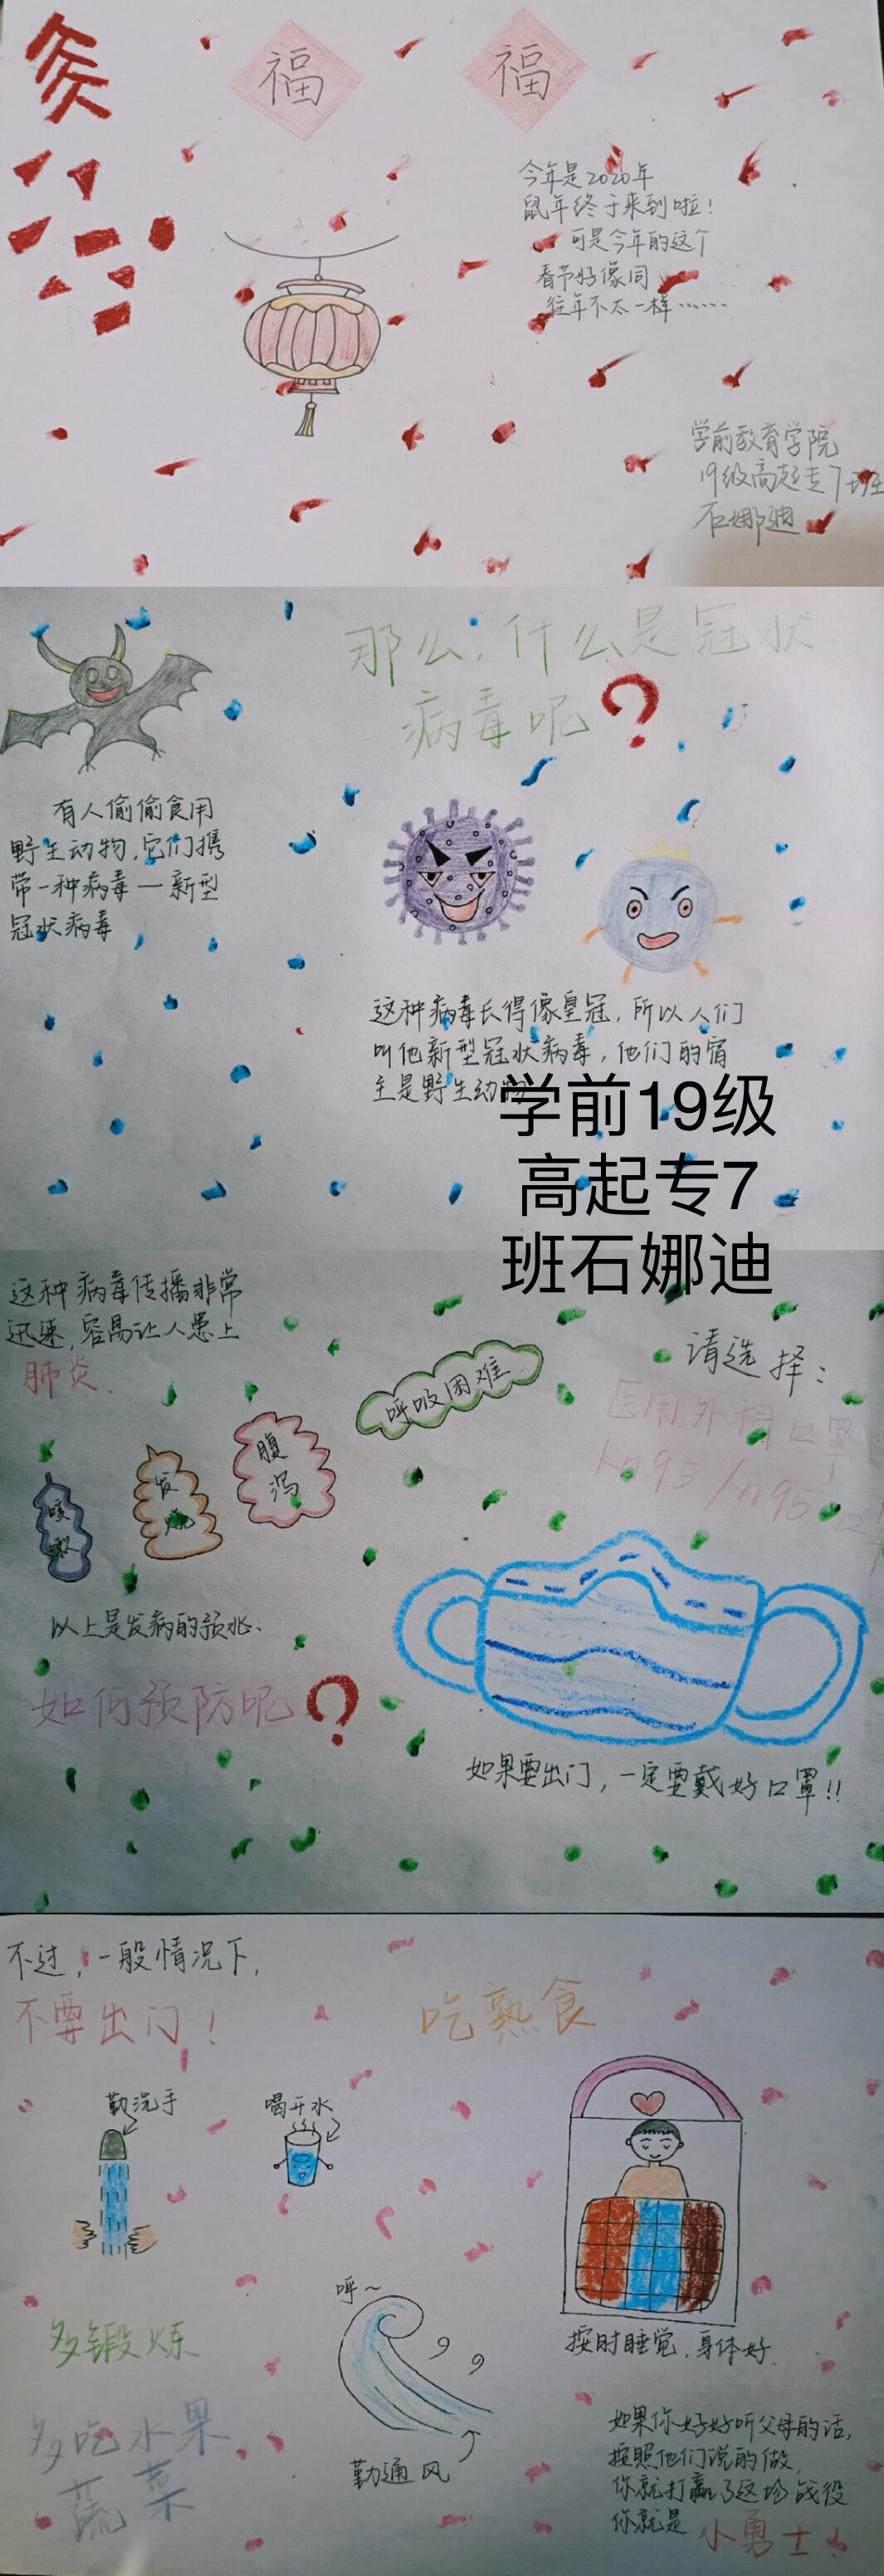 福
福
今年是2020年
鼠年终于来到啦！
可是今年的这个
春节好像同
往年不太一样……
学前教育学院
19级高起专7班
石娜迪
那么，什么是冠状
病毒呢？
有人偷偷食用
野生动物，它们携
带一种病毒—新型
冠状病毒
这种病毒长得像皇冠，所以人们
叫他新型冠状病毒，他们的宿
主是野生动物
学前19级
高起专7
班石娜迪
这种病毒传播非常
迅速，容易让人患上
肺炎.
咳嗽
发烧
腹泻
呼吸困难
以上是发病的预兆.
如何预防呢？
请选择：
医用外科口罩
kn95/n95口
如果要出门，一定要戴好口罩!!
不过，一般情况下，
不要出门！
吃熟食
勤洗手
喝开水
呼~
多锻炼
多吃水果
蔬菜
勤通风
按时睡觉，身体好.
如果你好好听父母的话，
按照他们说的做，
你就打赢了这场战役
你就是 小勇士！